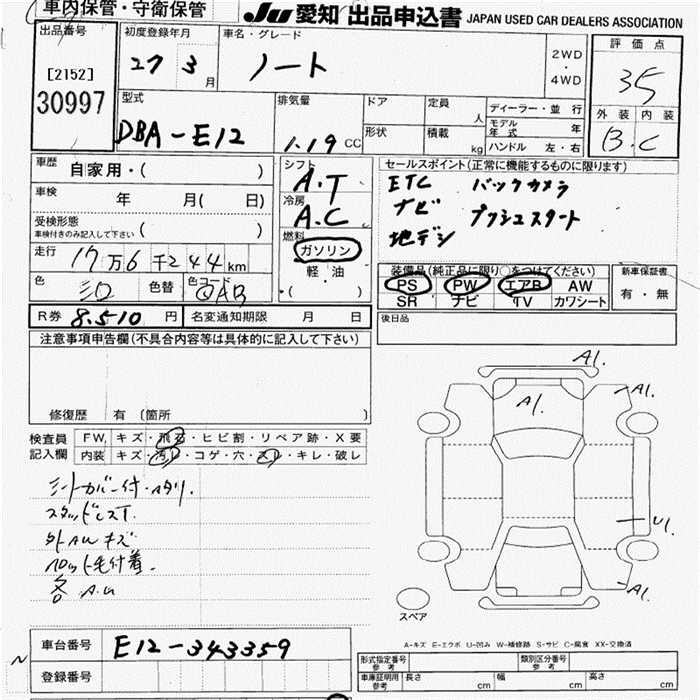 車内保管・守衛保管
JU 愛知 出品申込書 JAPAN USED CAR DEALERS ASSOCIATION
出品番号
[2152]
30997
初度登録年月
27 3月
車名・グレード
ノート
2WD
・
4WD
評価点
35
外装 内装
B. C
型式
DBA-E12
排気量
1.19 CC
ドア
定員 人
形状
積載 kg
ディーラー・並行
モデル年式 年
ハンドル 左・右
車歴 自家用・( )
車検 年 月( 日)
受検形態
車検付きのみ記入して下さい ( )
走行 17万6千244km
色
色替
色コード
シフト
A.T
冷房
A.C
燃料
ガソリン
軽・油
・( )
セールスポイント(正常に機能するものに限ります)
ETC バックカメラ
ナビ プッシュスタート
地デジ
装備品(純正品に限り○をつけてください)
PS PW エアB AW
SR ナビ TV カワシート
新車保証書
有・無
R券 8.510 円 名変通知期限 月 日
後日品
注意事項申告欄(不具合内容等は具体的に記入して下さい)
修復歴 有 (箇所 )
検査員 FW. キズ・飛石・ヒビ割・リペア跡・X要
記入欄 内装 キズ・汚レ・コゲ・穴・スレ・キレ・破レ
シートカバー付・
スタッドレスT.
外AWキズ
ペット毛付着.
各 A.U
A1.
A1.
A1.
U1.
A1.
スペア
A-キズ E-エクボ U-凹み W-補修跡 S-サビ C-腐食 XX-交換済
車台番号 E12-343359
登録番号
形式指定番号 参考
類別区分番号 参考
車庫証明用 参考 長さ cm 幅 cm 高さ cm